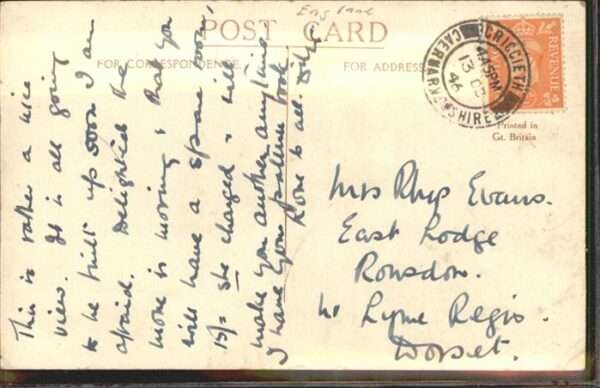 England
POST CARD
FOR CORRESPONDENCE.
FOR ADDRESS
CRICCIETH
4.45PM
13 OC
46
CAERNARVONSHIRE
REVENUE
Printed in
Gt. Britain
This is rather a nice
view. It is all going
to be built up soon I am
afraid. Delighted the
move is moving & that you
will have a spare room,
15/= she charged & will
make you another anytime
I have your pattern book
love to all.
Mrs Rhys Evans.
East Lodge
Rousdon.
Nr Lyme Regis.
Dorset.